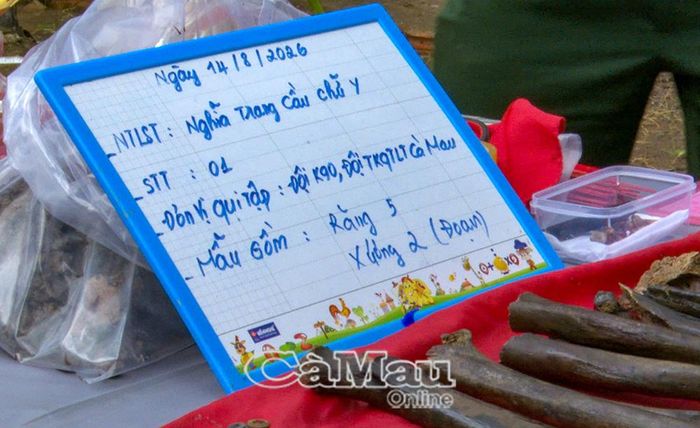 Ngày 14/8/2026
- NTLST : Nghĩa Trang Cầu chữ Y
- STT : 01
- Đơn vị qui tập : Đội K90, Đội TKQTLT Cà Mau
- Mẫu Gồm : Răng 5
Xương 2 (Đoạn)
CàMau
Online